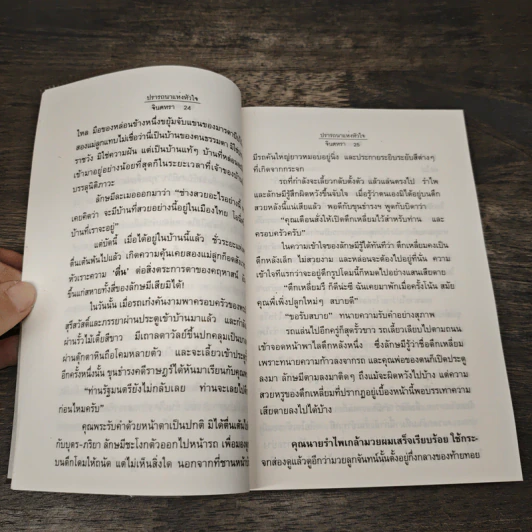 ปรารถนาแห่งหัวใจ
จินตหรา 24
ไหล มือของหล่อนข้างหนึ่งขยุ้มจับแขนของมารดา
สองแม่ลูกแทบไม่เชื่อว่านี่เป็นบ้านของคนธรรมดา มิใช่
ราชวัง มิใช่ความฝัน แต่เป็นบ้านแท้ๆ บ้านที่หล่อน
เข้ามาอยู่อย่างน้อยที่สุดก็ในระยะเวลาที่เจ้าของบ้าน
บรรลุนิติภาวะ
ลักษมีละเมอออกมาว่า “ช่างสวยอะไรอย่างนี้
เคยคิดว่า จะมีบ้านที่สวยอย่างนี้อยู่ในเมืองไทย
บ้านที่เราจะอยู่”
แต่บัดนี้ เมื่อได้อยู่ในบ้านนี้แล้ว ชั่วระยะ
ตื่นเต้นพ้นไปแล้ว เกิดความคุ้นเคยสองแม่ลูกก็อด
หัวเราะความ ‘ตื่น’ ต่อสิ่งตระการตาของคฤหาสน์
ขึ้นแก่สหายทั้งสี่ของลักษมีเสียมิได้!
ในวันนั้น เมื่อรถเก๋งคันงามพาครอบครัวของพระ
สุรัสวัสดิ์และภรรยาผ่านประตูเข้าบ้านมาแล้ว และ
ผ่านรั้วไม้เตี้ยสีขาว มีเถาลดาวัลย์ขึ้นปกคลุมเป็น
ผ่านตุ๊กตาหินถือโคมหลายตัว และจะเลี้ยวเข้าประตู
อีกครั้งหนึ่งนั้น ขุนช่างรงคดิษฐวุธได้หันมาเรียนกับคุณ
“ท่านรัฐมนตรียังไม่กลับเลย ท่านจะเลยไป
ก่อนไหมครับ”
คุณพระรับคำด้วยหน้าตาเป็นปกติ มิได้ตื่นเต้นไป
กับบุตร-ภริยา ลักษมีชะโงกตัวออกไปหน้ารถ เพื่อมอง
บนตึกโดมให้ถนัด แต่ไม่เห็นสิ่งใด นอกจากที่ชานหน้า
ปรารถนาแห่งหัวใจ
จินตหรา 25
มีรถคันใหญ่ยาวหมอบอยู่นิ่ง และประกายระยิบระยับสีต่างๆ
ที่เกิดจากกระจก
รถที่กำลังจะเลี้ยวกลับตั้งตัว แล้วแล่นตรงไป รำไพ
และลักษมีรู้สึกผิดหวังขึ้นจับใจ เมื่อรู้ว่าตนเองมิได้อยู่บนตึก
สวยหลังนี้แน่เสียแล้ว พอดีกับขุนช่างฯ พูดกับบิดาว่า
“คุณเตือนสั่งให้เปิดตึกเหลี่ยมไว้สำหรับท่าน และ
ครอบครัวครับ”
ในความเข้าใจของลักษมีรู้ได้ทันทีว่า ตึกเหลี่ยมคงเป็น
ตึกหลังเล็ก ไม่สวยงาม และหล่อนจะต้องไปอยู่ที่นั่น ความ
เข้าใจทีแรกว่าจะอยู่ตึกรูปโดมนี้ก็หมดไปอย่างแสนเสียดาย
“ตึกเหลี่ยมรี ก็ดีน่ะซี ฉันเคยมาพักเมื่อครั้งโน้น สมัย
คุณพี่เพิ่งปลูกใหม่ๆ สบายดี”
“ขอรับสบาย” ทนายความรับคำอย่างสุภาพ
รถแล่นไปอีกครู่ก็สุดรั้วขาว รถเลี้ยวเลียบไปตามถนน
เข้าจอดหน้าพาไลตึกหลังหนึ่ง ซึ่งลักษมีรู้ว่าชื่อตึกเหลี่ยม
เพราะทนายความก้าวลงจากรถ และคุณพ่อของตนก็เปิดประตู
ลงมา ลักษมีตามลงมาติดๆ ถึงแม้จะผิดหวังไปบ้าง แต่ความ
สวยหรูของตึกเหลี่ยมที่ปรากฏอยู่เบื้องหน้านี้พอบรรเทาความ
เสียดายลงไปได้บ้าง
คุณนายรำไพเกล้ามวยผมเสร็จเรียบร้อย ใช้กระ-
จกส่องดูแล้วดูอีกว่ามวยลูกจันทน์นั้นตั้งอยู่กึ่งกลางของท้ายทอย